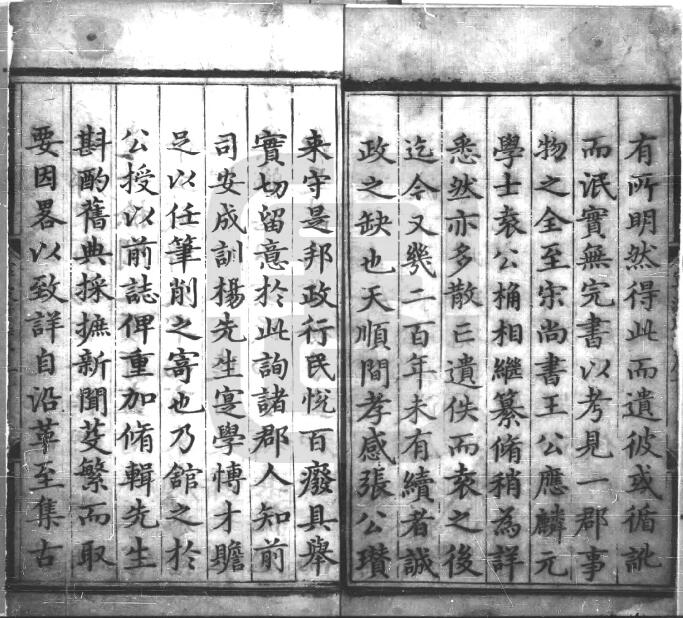 有所明然得此而遺彼或循訛
而泯實無完書以考見一郡事
物之全至宋尚書王公應麟元
學士袁公桷相繼纂脩稍為詳
悉然亦多散亡遺佚而袁之後
迄今又幾二百年未有續者誠
政之缺也天順間孝感張公瓚
来守是邦政行民悅百廢具舉
實切留意於此詢諸郡人知前
司安成訓楊先生寔學慱才贍
足以任筆削之寄也乃舘之於
公授以前誌俾重加脩輯先生
斟酌舊典採摭新聞芟繁而取
要因畧以致詳自沿革至集古